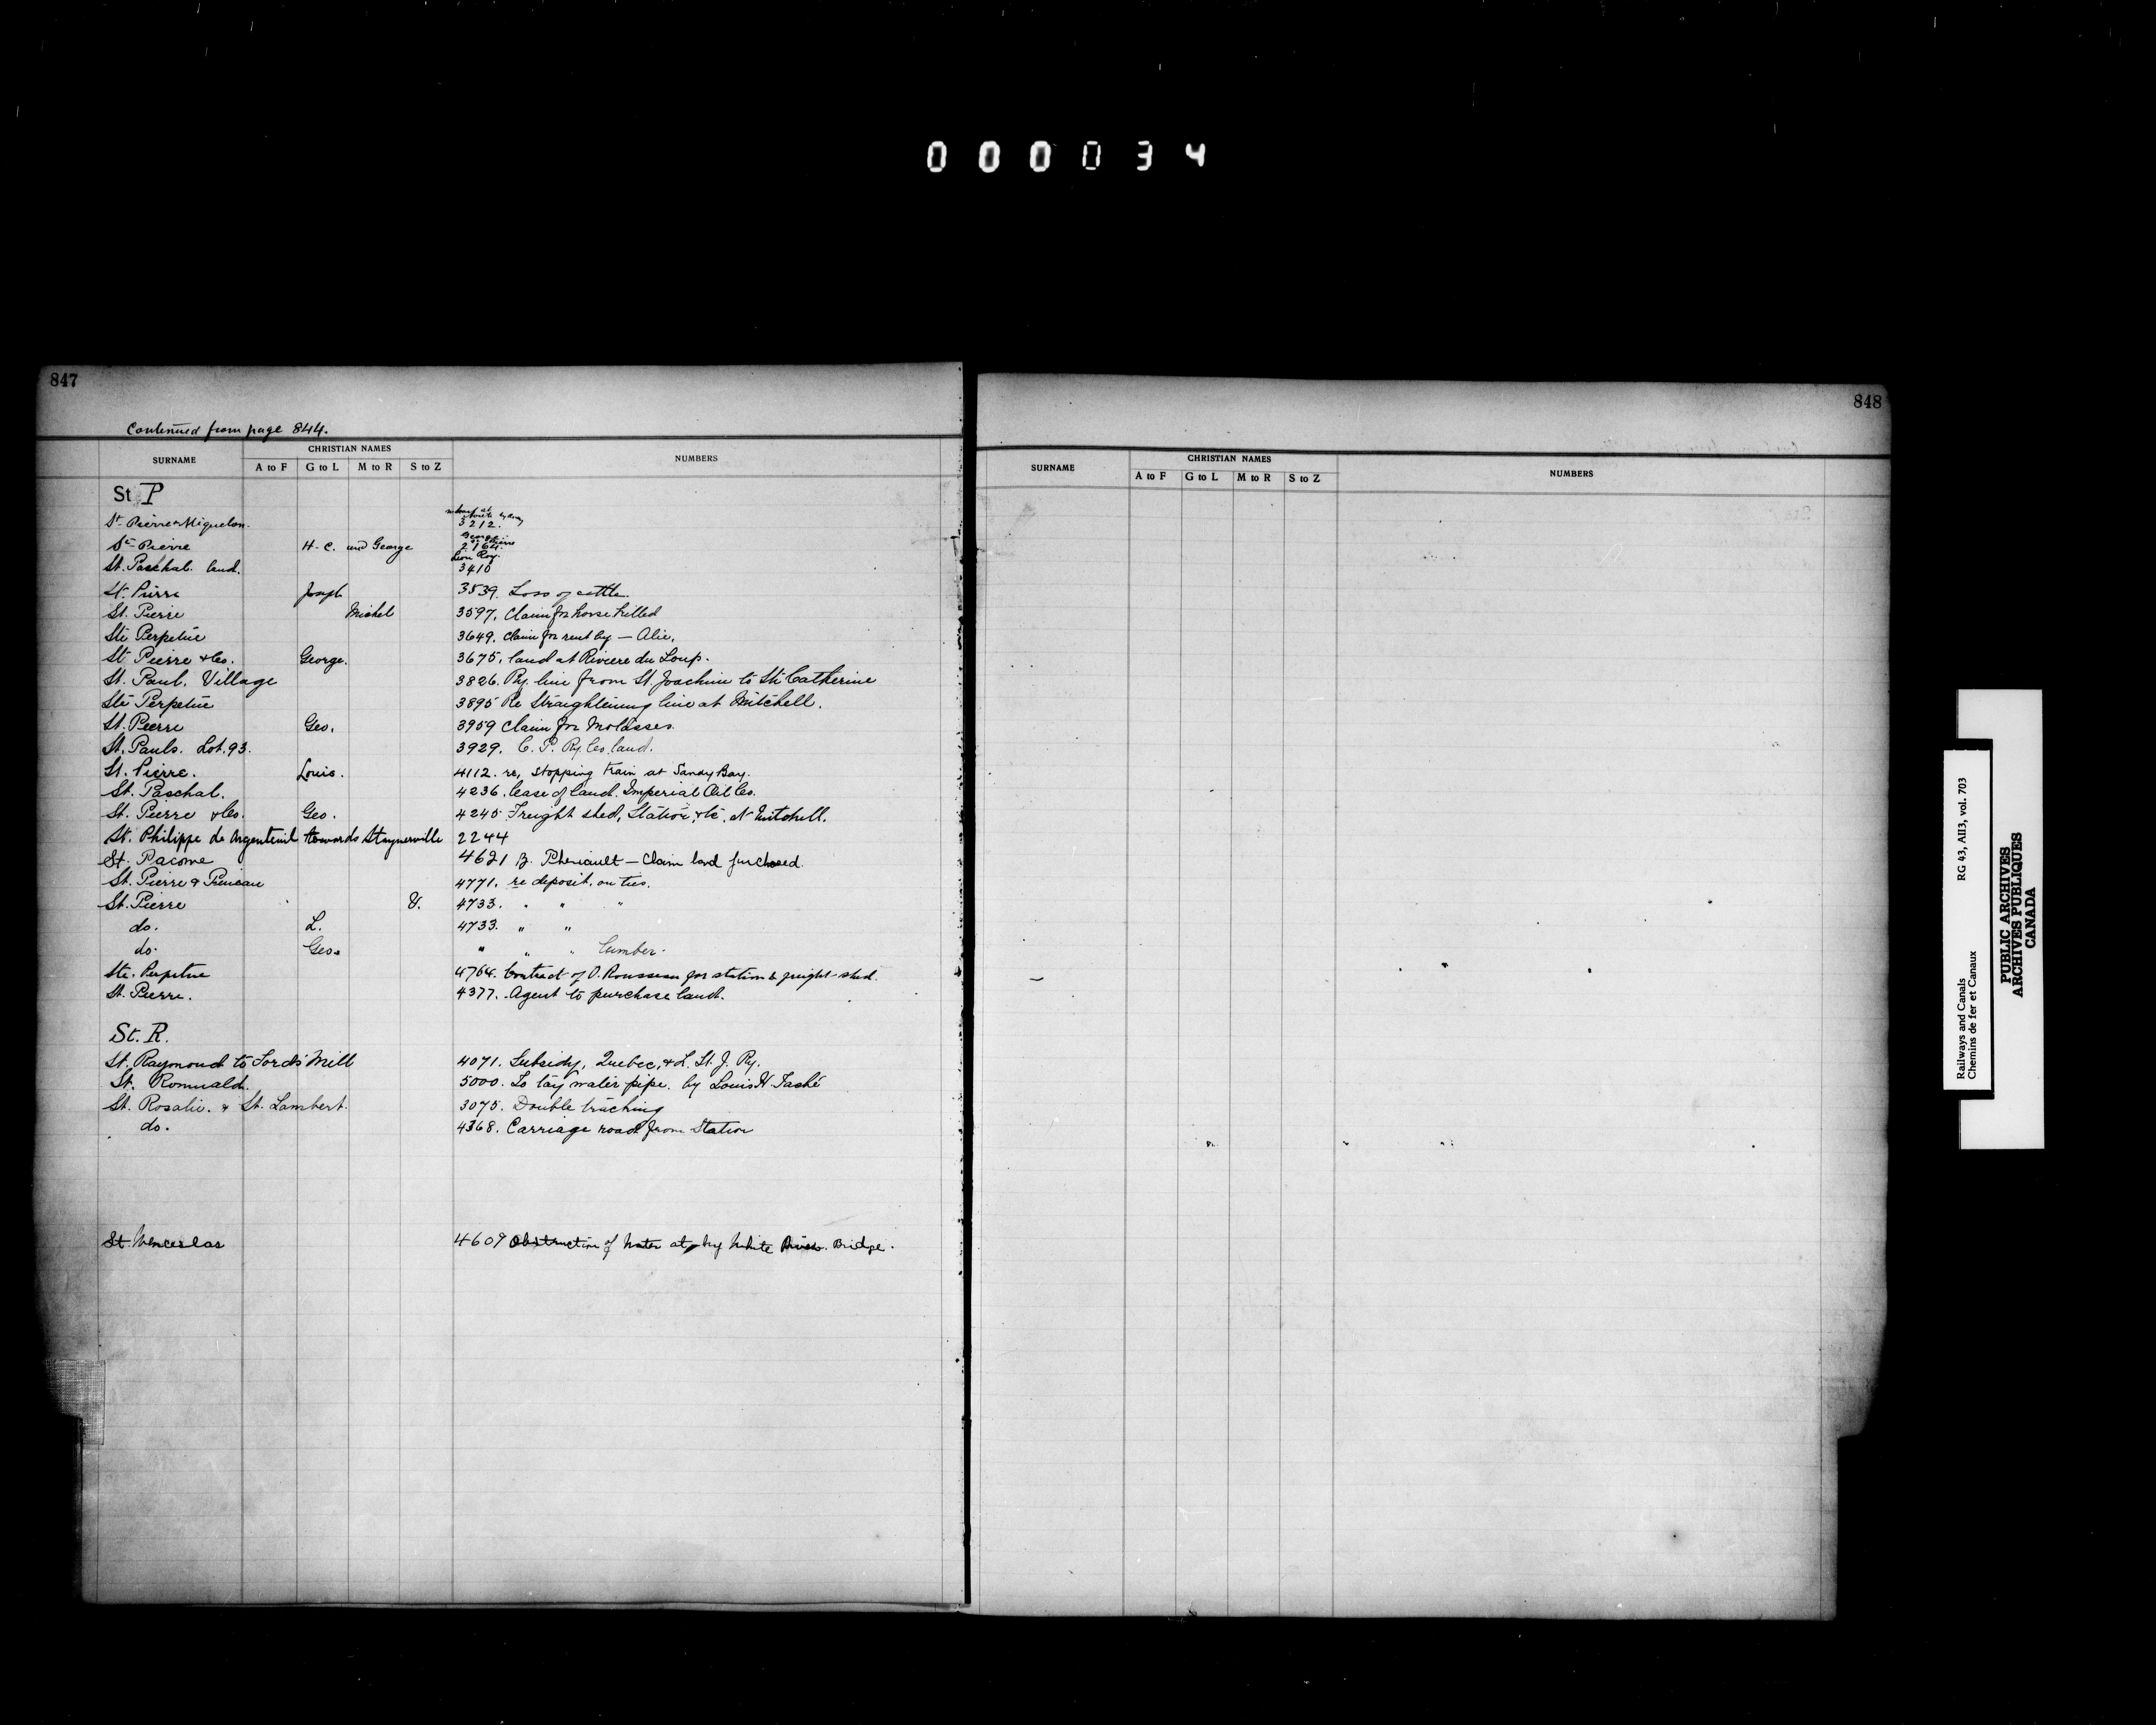 000034
847
Continued from page 844.
SURNAME CHRISTIAN NAMES NUMBERS
A to F G to L M to R S to Z
St. P
St. Pierre & Miquelon. 3212.
St. Pierre H. C. and George 2164.
Leon Roy.
St. Paschal. land. 3410
St. Pierre Joseph 3539. Loss of cattle.
St. Pierre Michel 3597. Claim for horse killed
Ste Perpetue 3649. Claim for rent by — Alie.
St. Pierre & Co. George. 3675. land at Riviere du Loup.
St. Paul. Village 3826. Ry. line from St. Joachim to Ste Catherine
Ste Perpetue 3895 Re Straightening line at Mitchell.
St. Pierre Geo. 3959 Claim for Molasses.
St. Pauls. Lot. 93. 3929. C. P. Ry. Co. land.
St. Pierre. Louis. 4112. re, stopping train at Sandy Bay.
St. Paschal. 4236. lease of land. Imperial Oil Co.
St. Pierre & Co. Geo. 4245 Freight shed, Station, &c, at Mitchell.
St. Philippe de Argenteuil towards Staynerville 2244
St. Pacome 4621 B. Theriault — Claim land purchased.
St. Pierre & 4771. re deposit. on ties.
St. Pierre 4733. " " "
do. L. 4733. " "
do. Geo. " " " lumber.
Ste. Perpetue 4764. Contract of O. Rousseau for station & freight-shed.
St. Pierre. 4377. Agent to purchase land.
St. R.
St. Raymond to Lord's Mill 4071. Subsidy, Quebec, & L. St. J. Ry.
St. Romuald. 5000. To lay water pipe. by Louis H. Taché
St. Rosalie. & St. Lambert. 3075. Double tracking
do. 4368. Carriage road from Station
St. Wenceslas 4609 Obstruction of water at, by White River. Bridge.
848
SURNAME CHRISTIAN NAMES NUMBERS
A to F G to L M to R S to Z
Railways and Canals RG 43, AII3, vol. 703
Chemins de fer et Canaux
PUBLIC ARCHIVES
ARCHIVES PUBLIQUES
CANADA